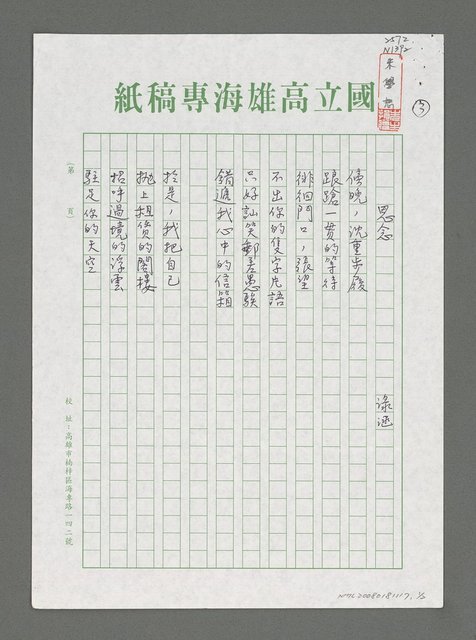 2572
N1392
國立高雄海專稿紙
思念
涤涵
傍晚，沈重步履
踉蹌一貫的等待
徘徊門口，張望
不出你的隻字片語
只好訕笑郵差愚騃
錯遞我心中的信箱
於是，我把自己
拋上租賃的閣樓
招呼過境的浮雲
駐足你的天空
第　頁
校址：高雄市楠梓區海專路一四二號
NTL20080181117, 1/2